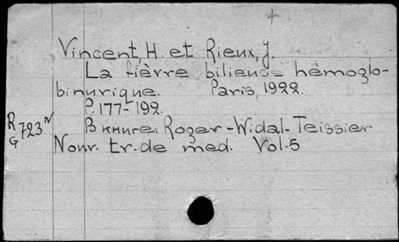 Vincent, H. et Rieux, J.
La fièvre bilieuse hémoglo-
binurique. Paris, 1922.
P. 177-192.
R 723 N
G
В книге: Roger-Widal-Teissier
Nouv. tr. de med. Vol. 5